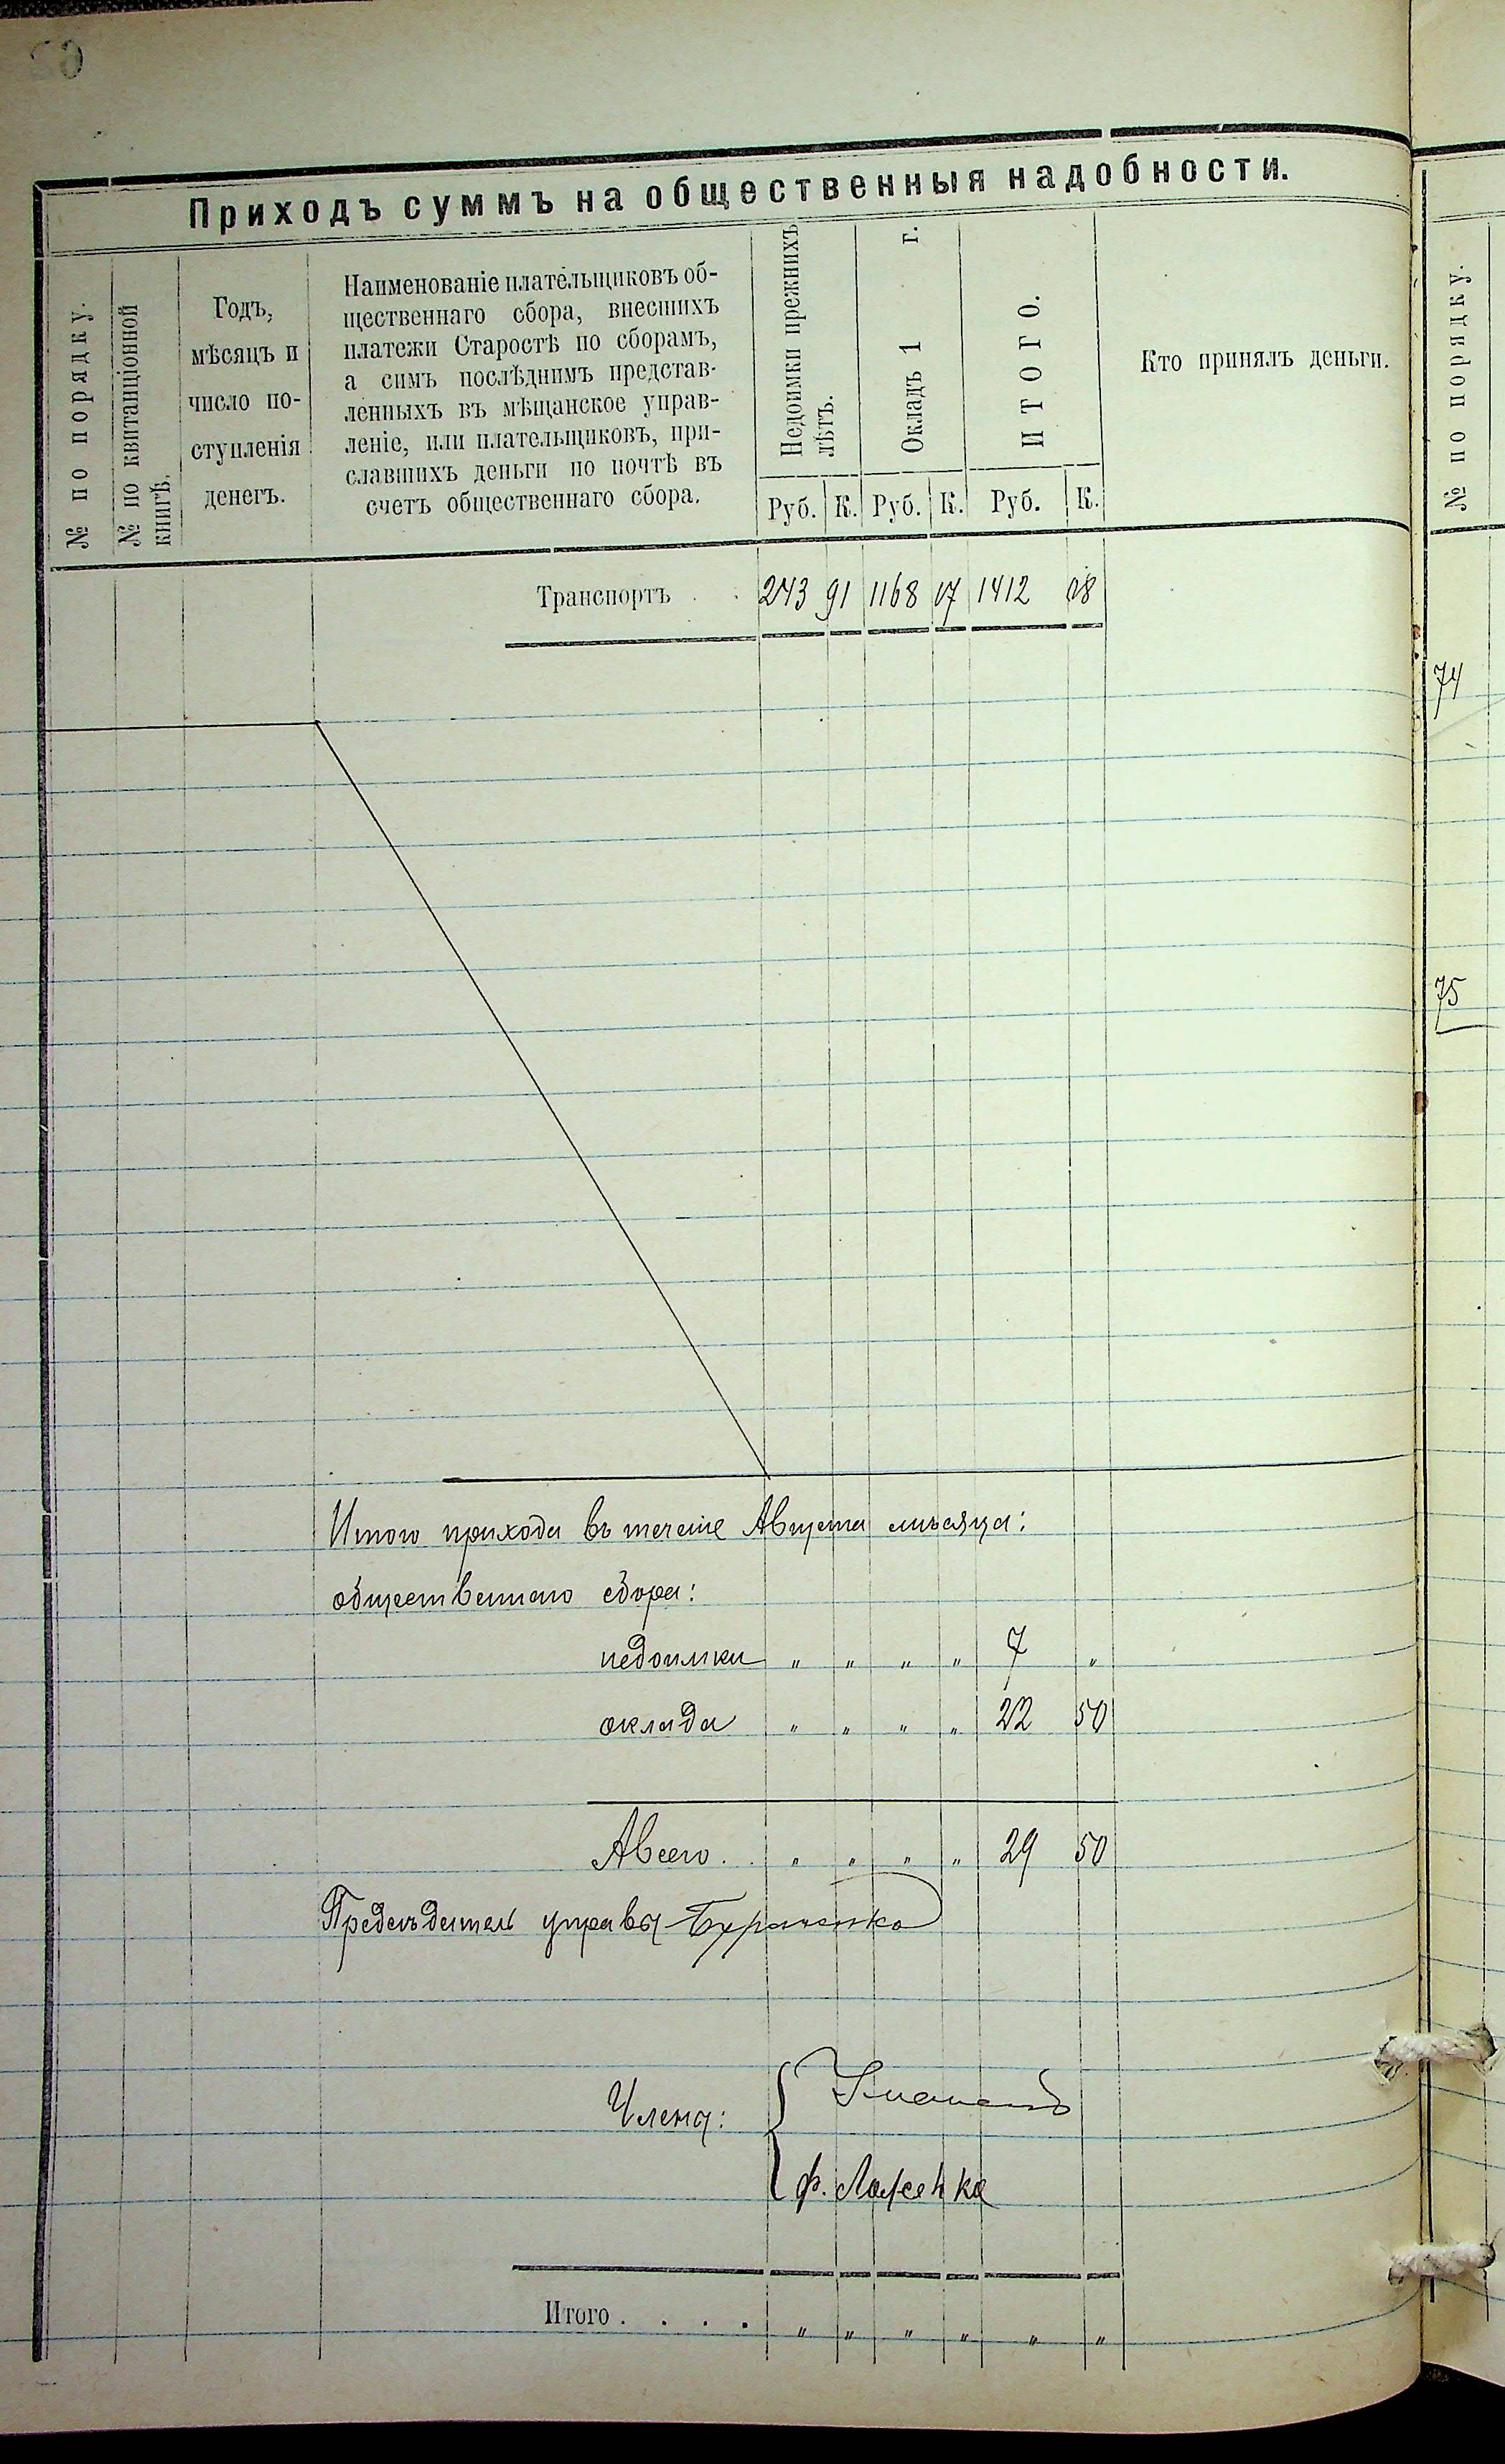 Приходъ суммъ на общественныя надобности.
№ по порядку.
№ по квитанціонной
книгѣ.
Годъ,
мѣсяцъ и
число по-
ступленія
денегъ.
Наименованіе плательщиковъ об-
щественнаго сбора, внесшихъ
платежи Старостѣ по сборамъ,
а симъ послѣднимъ представ-
ленныхъ въ мѣщанское управ-
леніе, или плательщиковъ, при-
славшихъ деньги по почтѣ въ
счетъ общественнаго сбора.
Недоимки прежнихъ
лѣтъ.
Окладъ 1 г.
ИТОГО.
Кто принялъ деньги.
№ по порядку.
Руб. К. Руб. К. Руб. К.
Транспортъ . . 243 91 1168 17 1412 08
74
75
Итого прихода въ теченіе Августа мѣсяца:
общественнаго сбора:
недоимки " " " " 7 "
оклада " " " " 22 50
А всего . . " " " " 29 50
Предсѣдатель управы
Члены:
Ф.
Итого . . . . " " " " " "